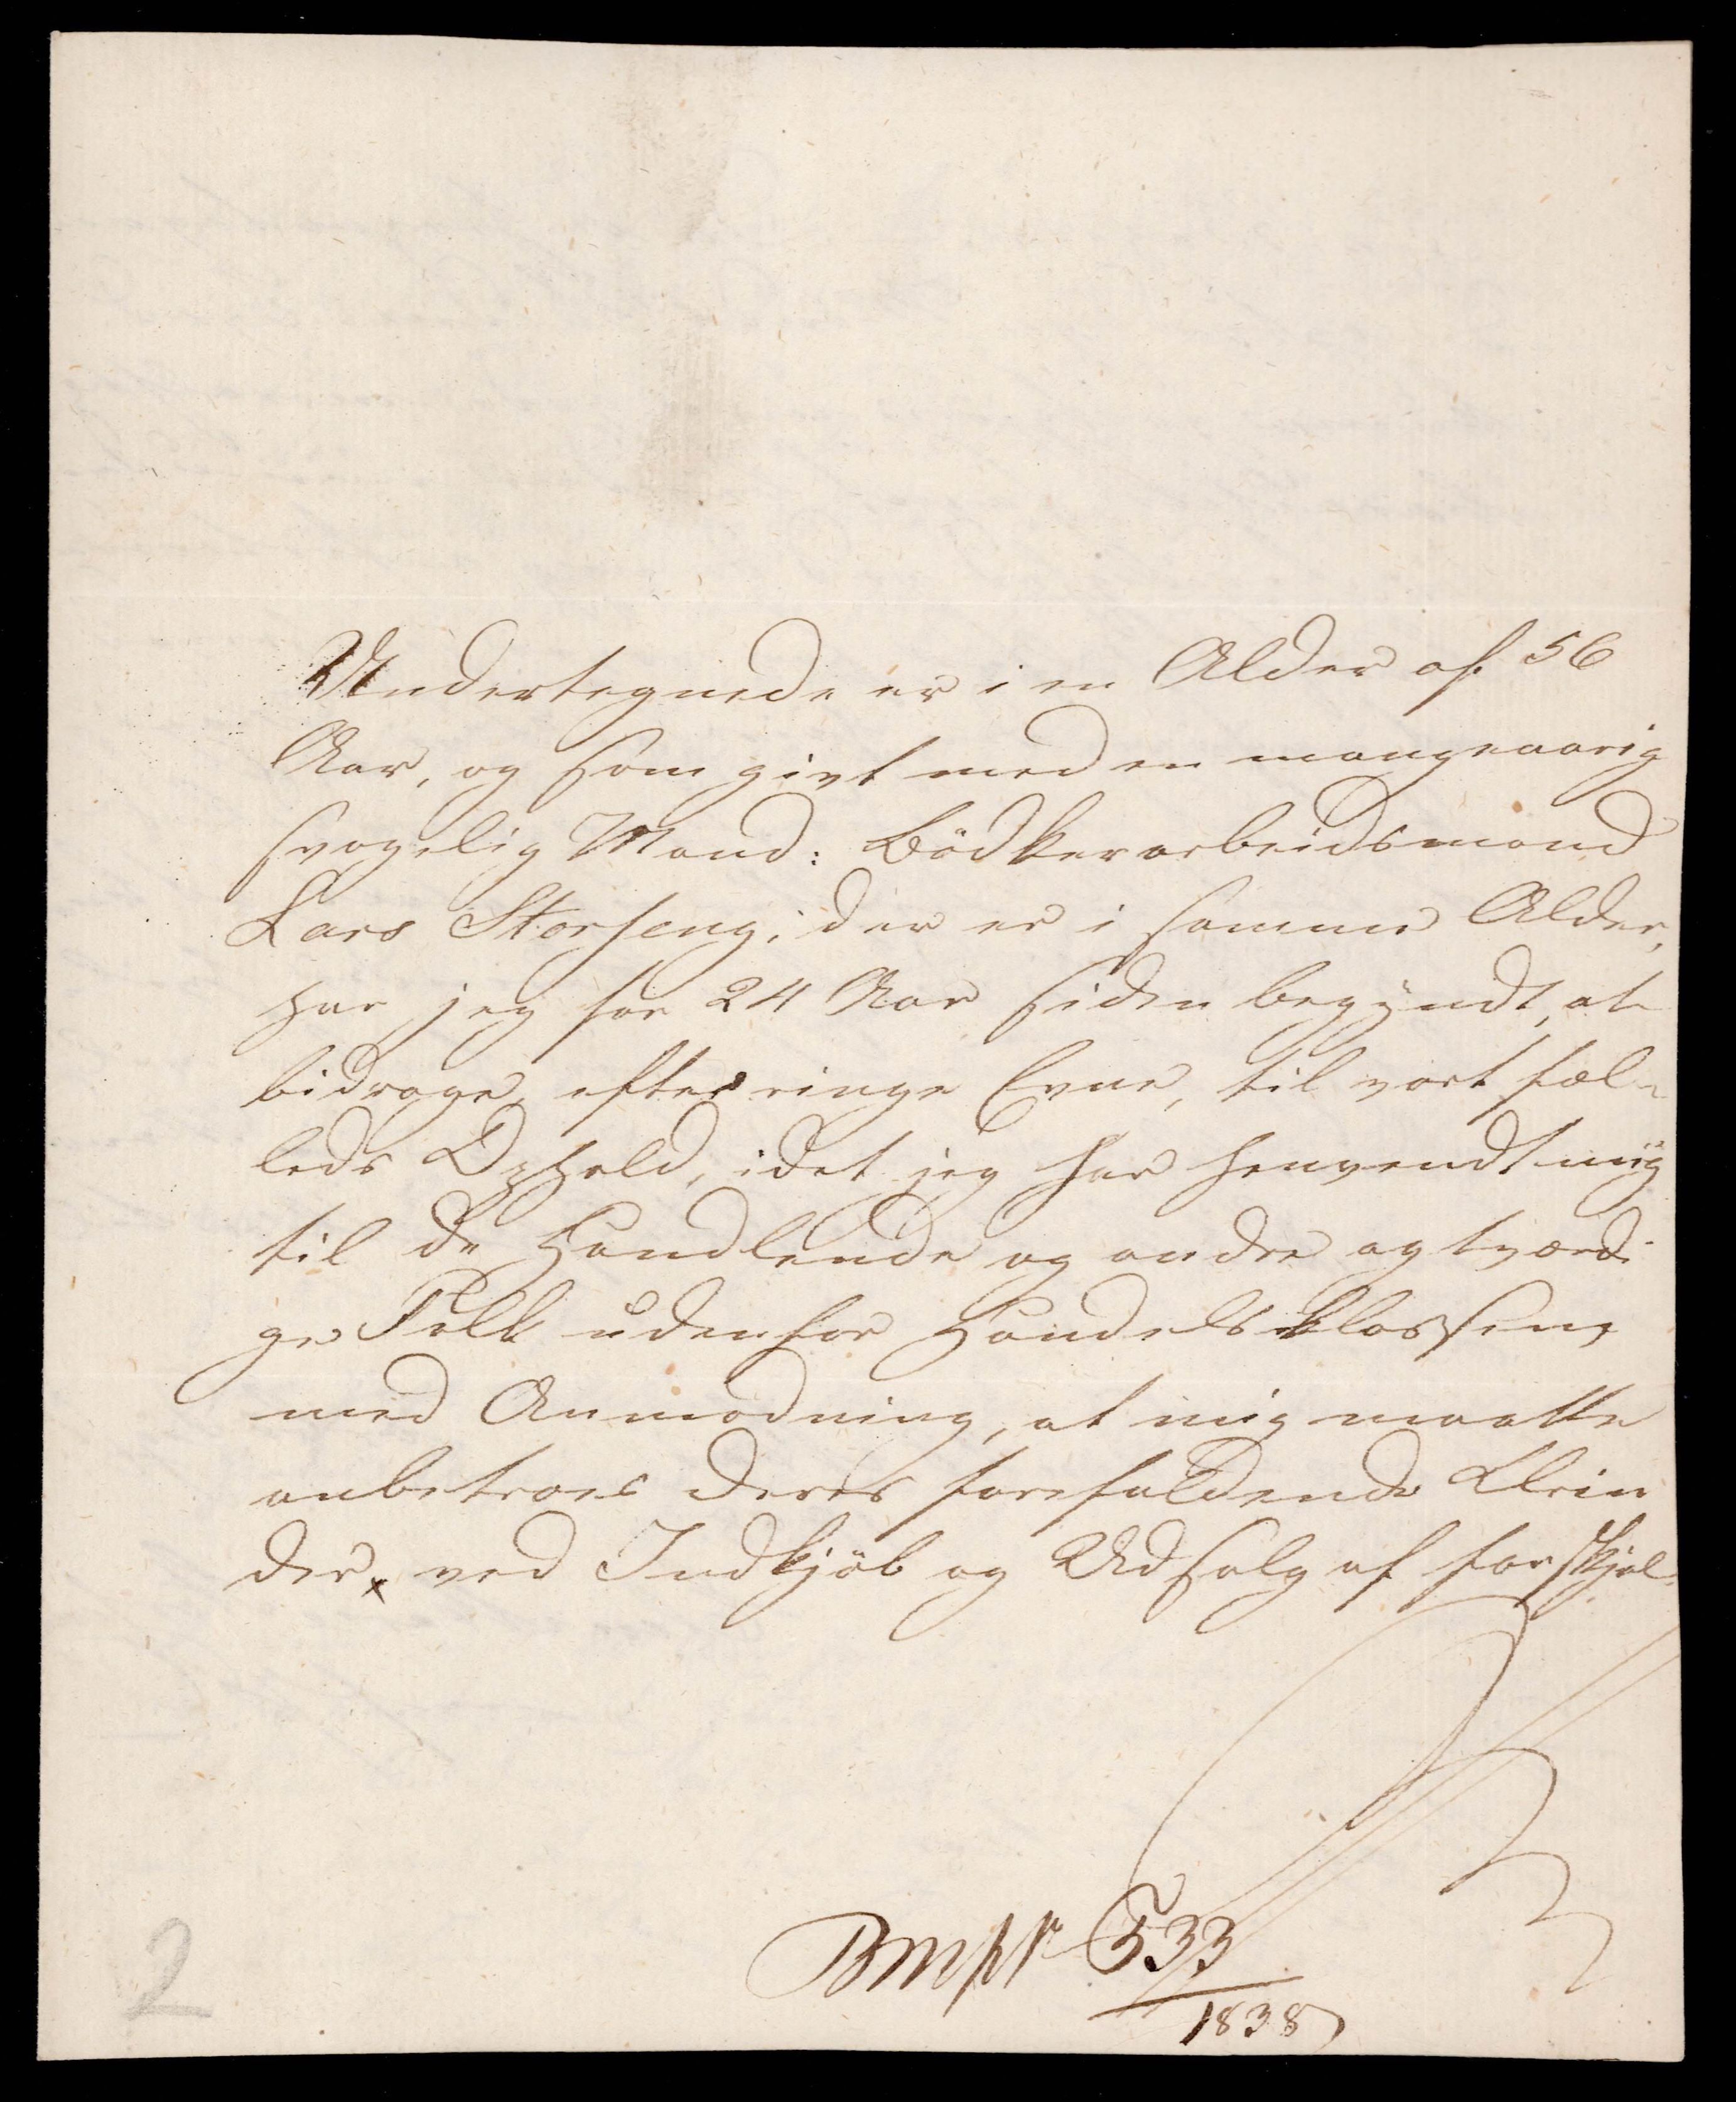 Undertegnede er i en Alder af 56
Aar, og som givt med en mangeaarig
svagelig Mand: Bödkerarbeidsmand
Lars Storseng, der er i samme Alder,
har jeg for 24 Aar siden begÿndt, at
bidrage, efter ringe Evne, til vort fæl-
leds Ophold, idet jeg har henvendt mig
til de Handlende og andre agtværdi
ge Folk udenfor Handelsklassen,
med Anmodning, at mig maatte
anbetroes deres forefaldende Ærin
der, ved Indkjöb og Udsalg af forskjel-
533
1838
2